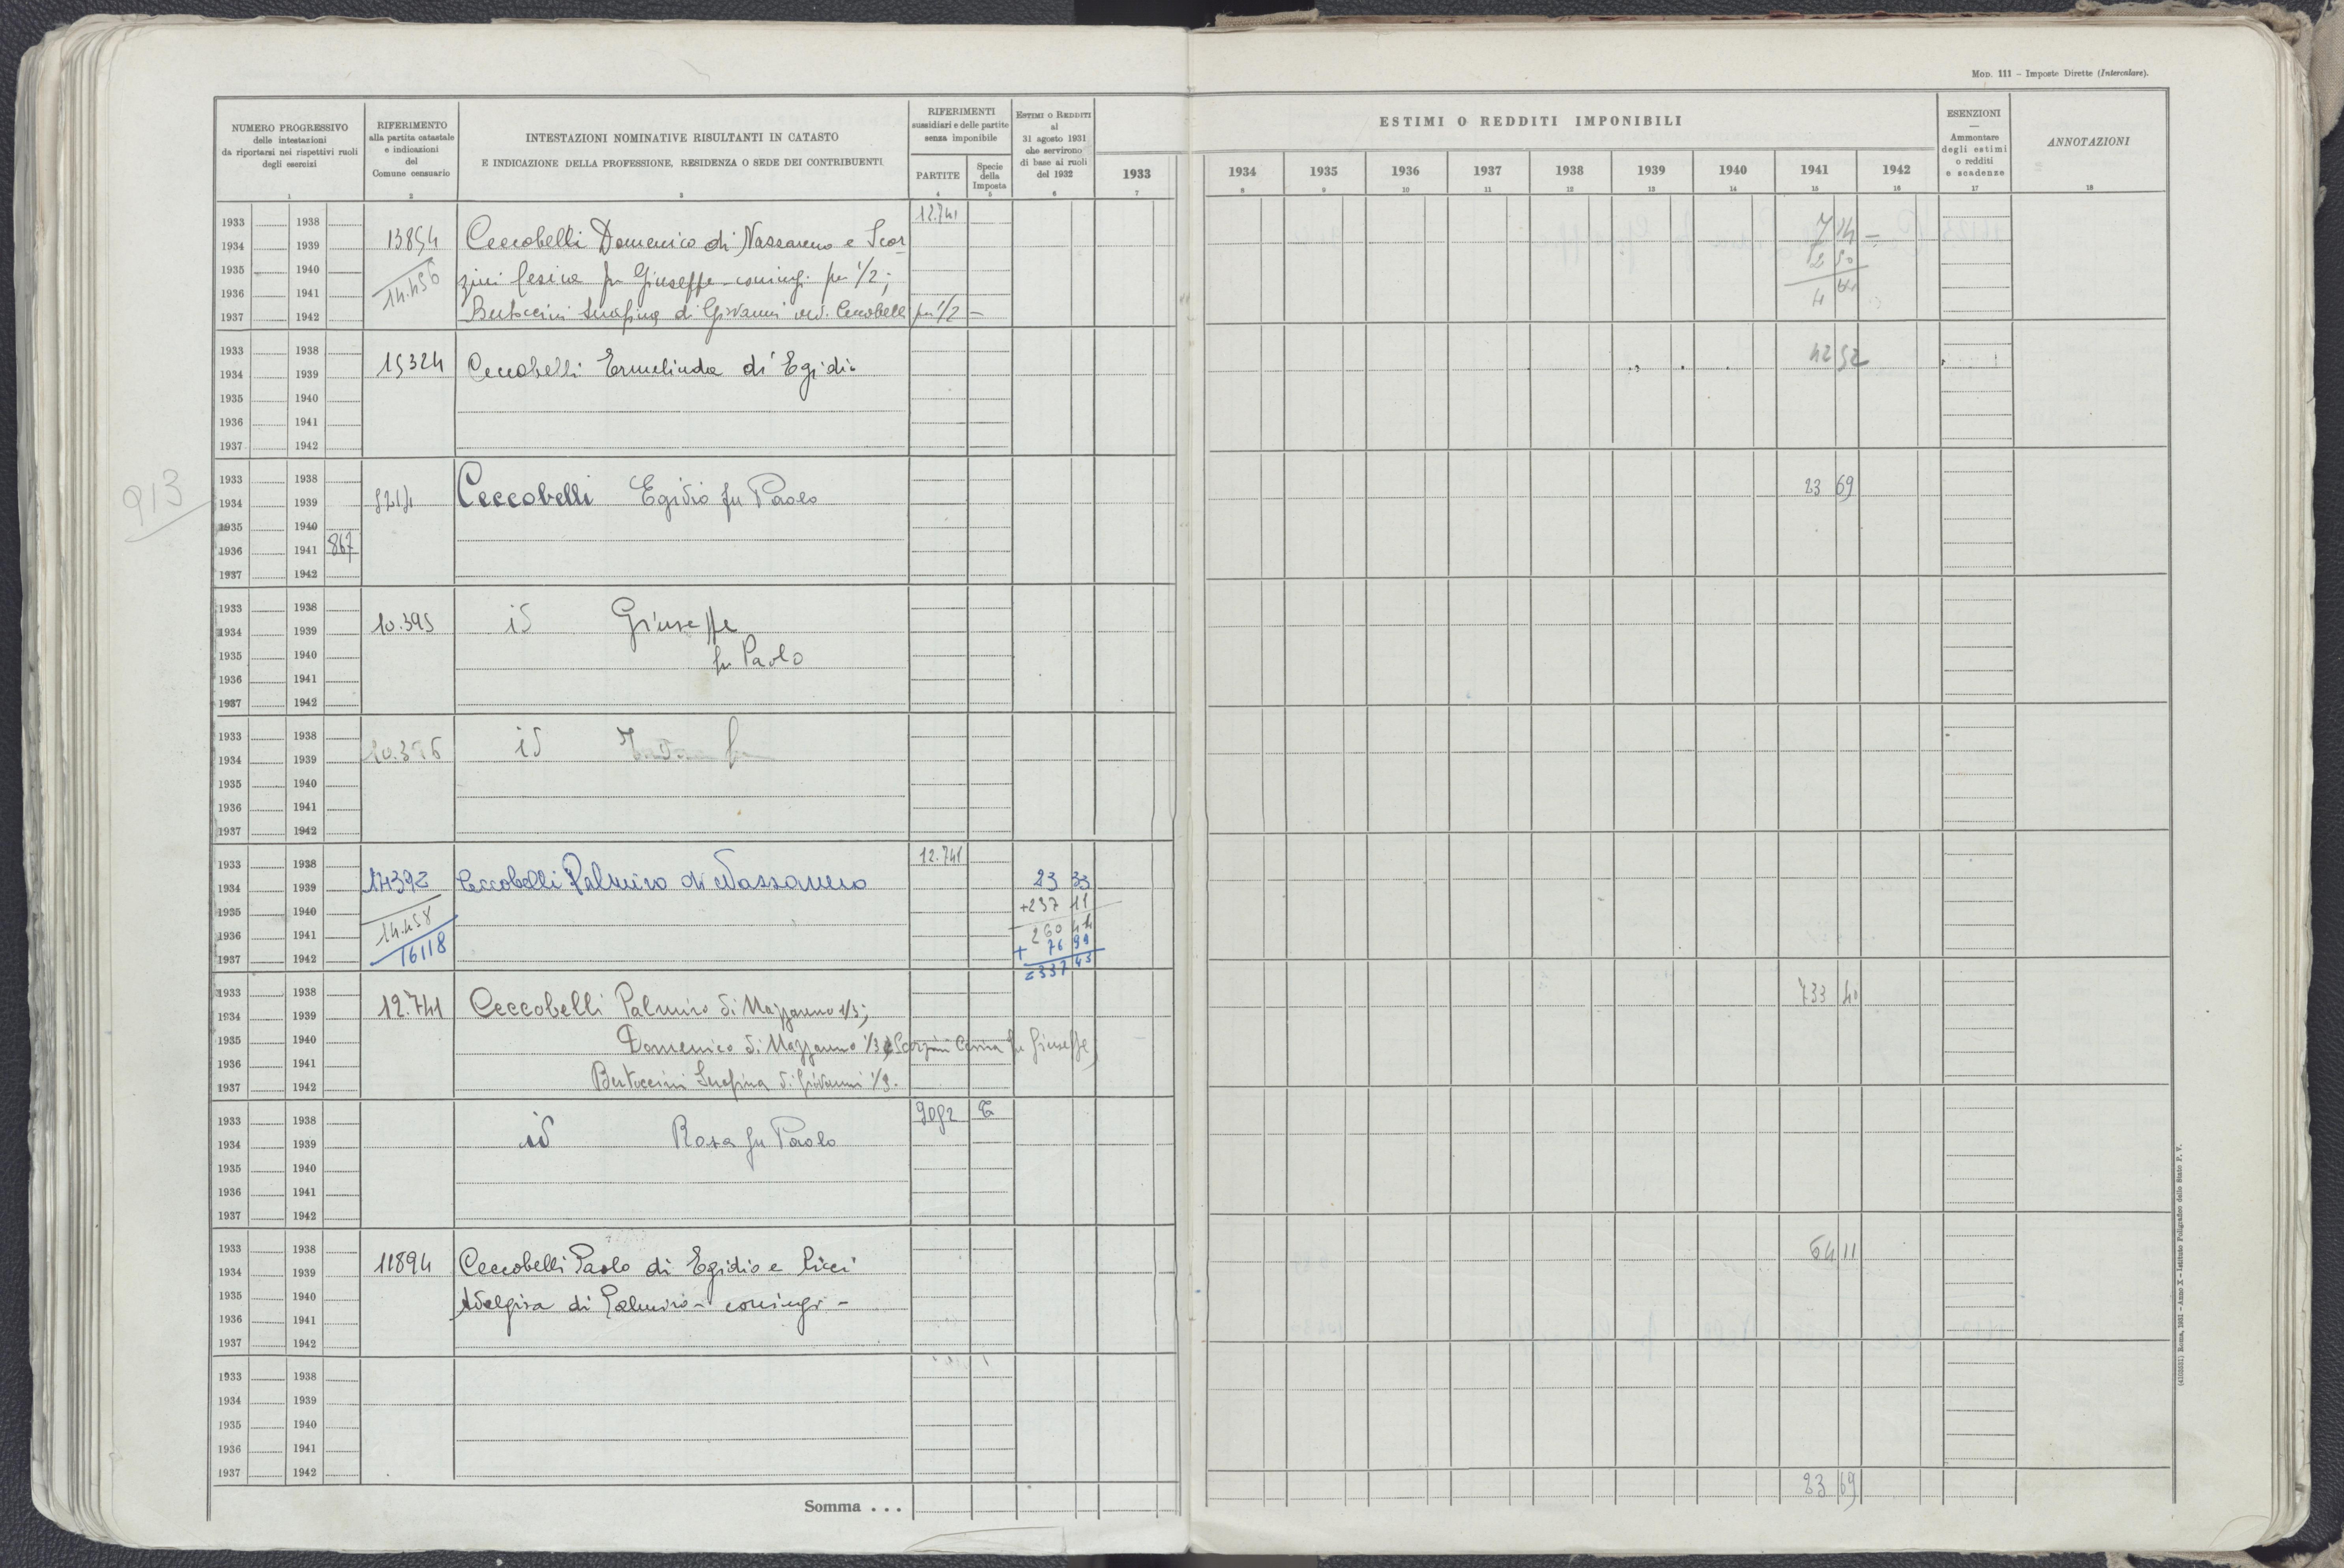 Mod. 111 – Imposte Dirette (Intercalare).
NUMERO PROGRESSIVO
delle intestazioni
da riportarsi nei rispettivi ruoli
degli esercizi
1
RIFERIMENTO
alla partita catastale
e indicazioni
del
Comune censuario
2
INTESTAZIONI NOMINATIVE RISULTANTI IN CATASTO
E INDICAZIONE DELLA PROFESSIONE, RESIDENZA O SEDE DEI CONTRIBUENTI
3
RIFERIMENTI
sussidiari e delle partite
senza imponibile
PARTITE
4
Specie
della
Imposta
5
Estimi o Redditi
al
31 agosto 1931
che servirono
di base ai ruoli
del 1932
6
ESTIMI O REDDITI IMPONIBILI
1933 1934 1935 1936 1937 1938 1939 1940 1941 1942
7 8 9 10 11 12 13 14 15 16
ESENZIONI
—
Ammontare
degli estimi
o redditi
e scadenze
17
ANNOTAZIONI
18
12.741
1933 1938
1934 1939 13854 Ceccobelli Domenico di Nassareno e Scor- 7 14 –
1935 1940 zini Cesira fu Giuseppe - coniugi per 1/2; 2 50
1936 1941 14.456 4 64
1937 1942 Bertoccini Serafina di Giovanni ved. Ceccobelli per 1/2 –
1933 1938
1934 1939 15324 Ceccobelli Ermelinda di Egidio 42 52
1935 1940
1936 1941
1937 1942
913
1933 1938
1934 1939 Ceccobelli Egidio fu Paolo 23 69
1935 1940
1936 1941 867
1937 1942
1933 1938
1934 1939 10.395 id Giuseppe
1935 1940 fu Paolo
1936 1941
1937 1942
1933 1938
1934 1939 10.376 id fu
1935 1940
1936 1941
1937 1942
1933 1938 12.741
1934 1939 14392 Ceccobelli Palmiro di Nassareno 23 33
1935 1940 14.458 +237 11
1936 1941 260 44
1937 1942 16118 + 76 99
= 337 43
1933 1938
1934 1939 12.741 Ceccobelli Palmiro di Nazzareno 1/3; 733 40
1935 1940 Domenico di Nazzareno 1/3 e Scorzini Cesira fu Giuseppe
1936 1941
1937 1942 Bertoccini Serafina di Giovanni 1/3.
1933 1938 9092 T
1934 1939 id Rosa fu Paolo
1935 1940
1936 1941
1937 1942
1933 1938
1934 1939 11894 Ceccobelli Paolo di Egidio e Ricci 64 11
1935 1940 Adalgisa di Palmiro - coniugi -
1936 1941
1937 1942
1933 1938
1934 1939
1935 1940
1936 1941
1937 1942
Somma . . . 23 69
(4103531) Roma, 1931 – Anno X – Istituto Poligrafico dello Stato P. V.